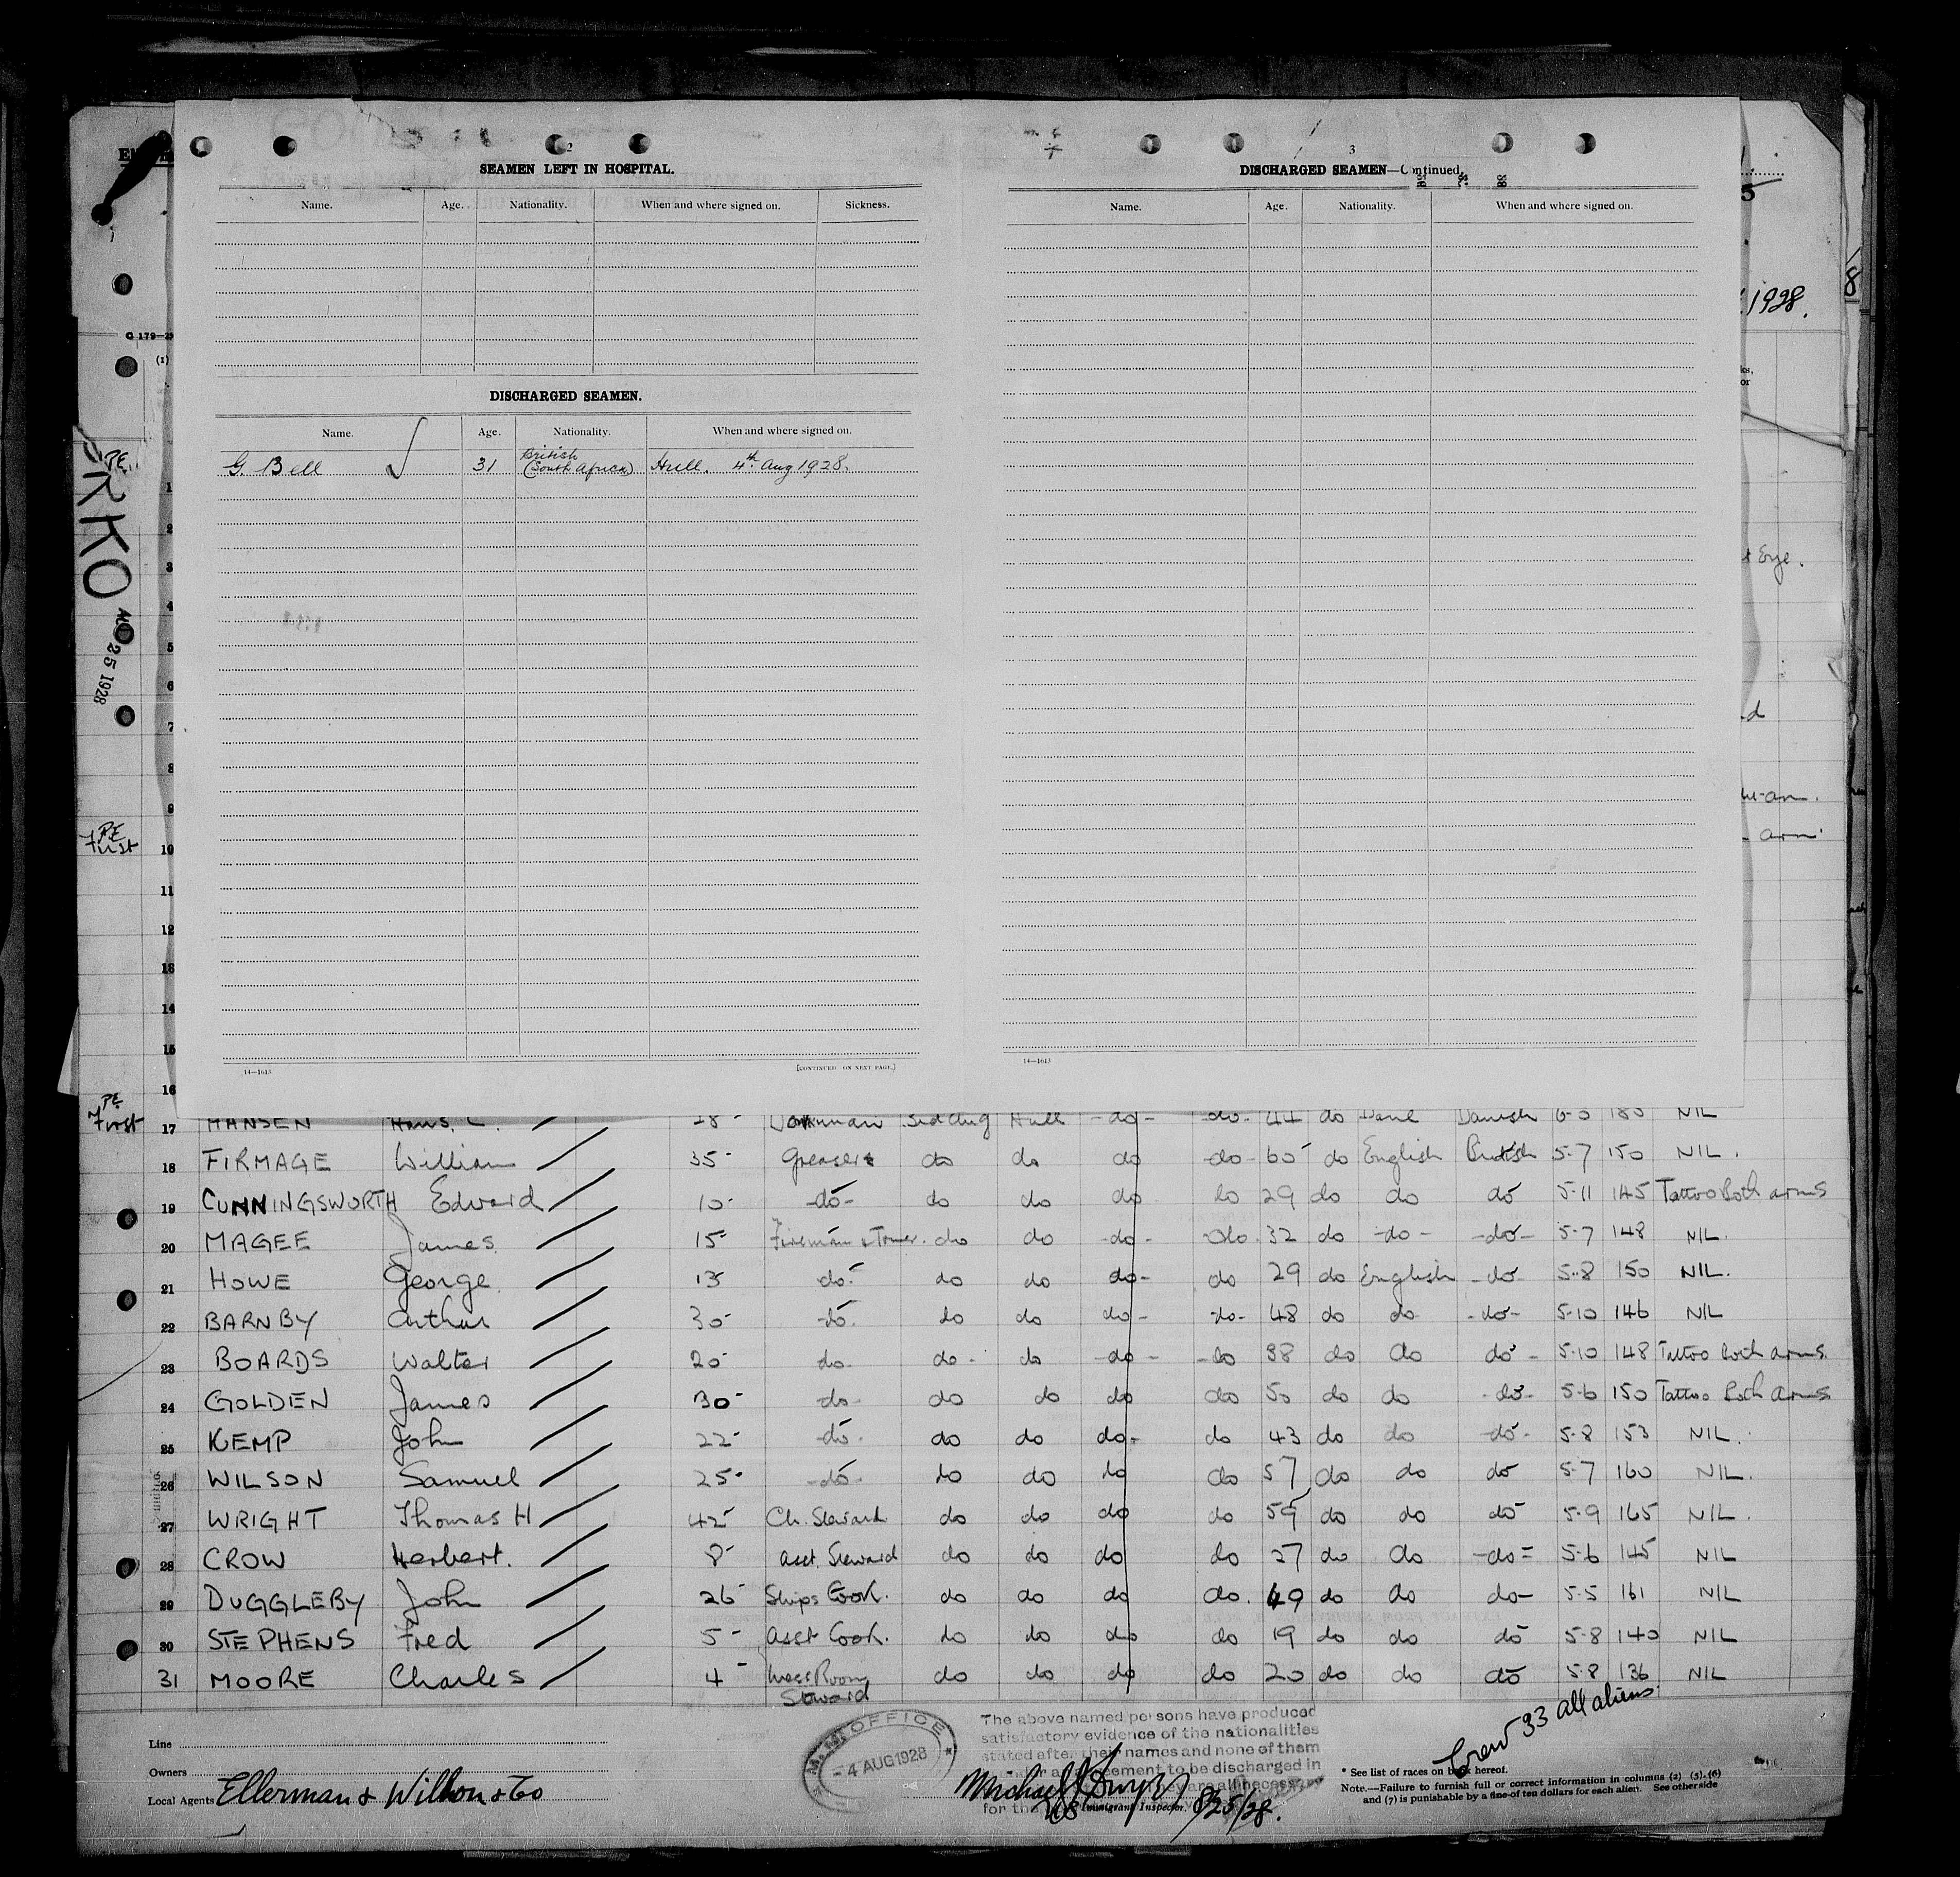 2
SEAMEN LEFT IN HOSPITAL.
Name. Age. Nationality. When and where signed on. Sickness.
DISCHARGED SEAMEN.
Name. Age. Nationality. When and where signed on.
G. Bell 31 British (South Africa) Hull. 4th Aug 1928.
14—1613
[CONTINUED ON NEXT PAGE.]
3
DISCHARGED SEAMEN—Continued.
Name. Age. Nationality. When and where signed on.
14—1613
1928.
8
5
Eye.
arm.
RKO
25 1928
(1)
PE
PE
First
PE
First
1
2
3
4
5
6
7
8
9
10
11
12
13
14
15
16
17 HANSEN Hans. C. 28 Donkeyman 3rd Aug Hull -do- -do- 44 do Dane Danish 6-0 180 NIL
18 FIRMAGE William 35- Greaser do do do -do- 60 do English British 5-7 150 NIL.
19 CUNNINGSWORTH Edward 10- -do- do do do do 29 do do do 5-11 145 Tattoo Both arms
20 MAGEE James 15- Fireman & Trimer. do do -do- do. 32 do -do- -do- 5-7 148 NIL.
21 HOWE George 13 do- do do do- do 29 do English -do- 5-8 150 NIL.
22 BARNBY Arthur 30- -do- do do do- -do- 48 do do -do- 5-10 146 NIL
23 BOARDS Walter 20- do- do- do -do- -do 38 do do do- 5-10 148 Tattoo both arms.
24 GOLDEN James 30- -do- do do do do 50 do do -do- 5-6 150 Tattoo Both Arms
25 KEMP John 22- -do- do do do- do 43 do do -do- 5-8 153 NIL.
26 WILSON Samuel 25- -do- do do do do 57 do do do 5-7 160 NIL.
27 WRIGHT Thomas H 42- Ch. Steward do do do do 59 do do do- 5-9 165 NIL.
28 CROW Herbert. 8- Asst. Steward do do do do 27 do do -do= 5-6 145 NIL
29 DUGGLEBY John 26- Ships Cook. do do do do. 49 do do do- 5-5 161 NIL
30 STEPHENS Fred 5- Asst Cook. do do do do 19 do do do 5-8 140 NIL
31 MOORE Charles 4- Mess Room Steward do do do do 20 do do do 5-8 136 NIL
Crew 33 all aliens
Line
Owners
Local Agents Ellerman & Wilson & Co
M.M. OFFICE
-4 AUG 1928
The above named persons have produced
satisfactory evidence of the nationalities
stated after their names and none of them
to be discharged in
are all necessary
for the
Immigrant Inspector. 8/25/28.
* See list of races on back hereof.
Note.—Failure to furnish full or correct information in columns (2) (5) (6)
and (7) is punishable by a fine of ten dollars for each alien. See other side